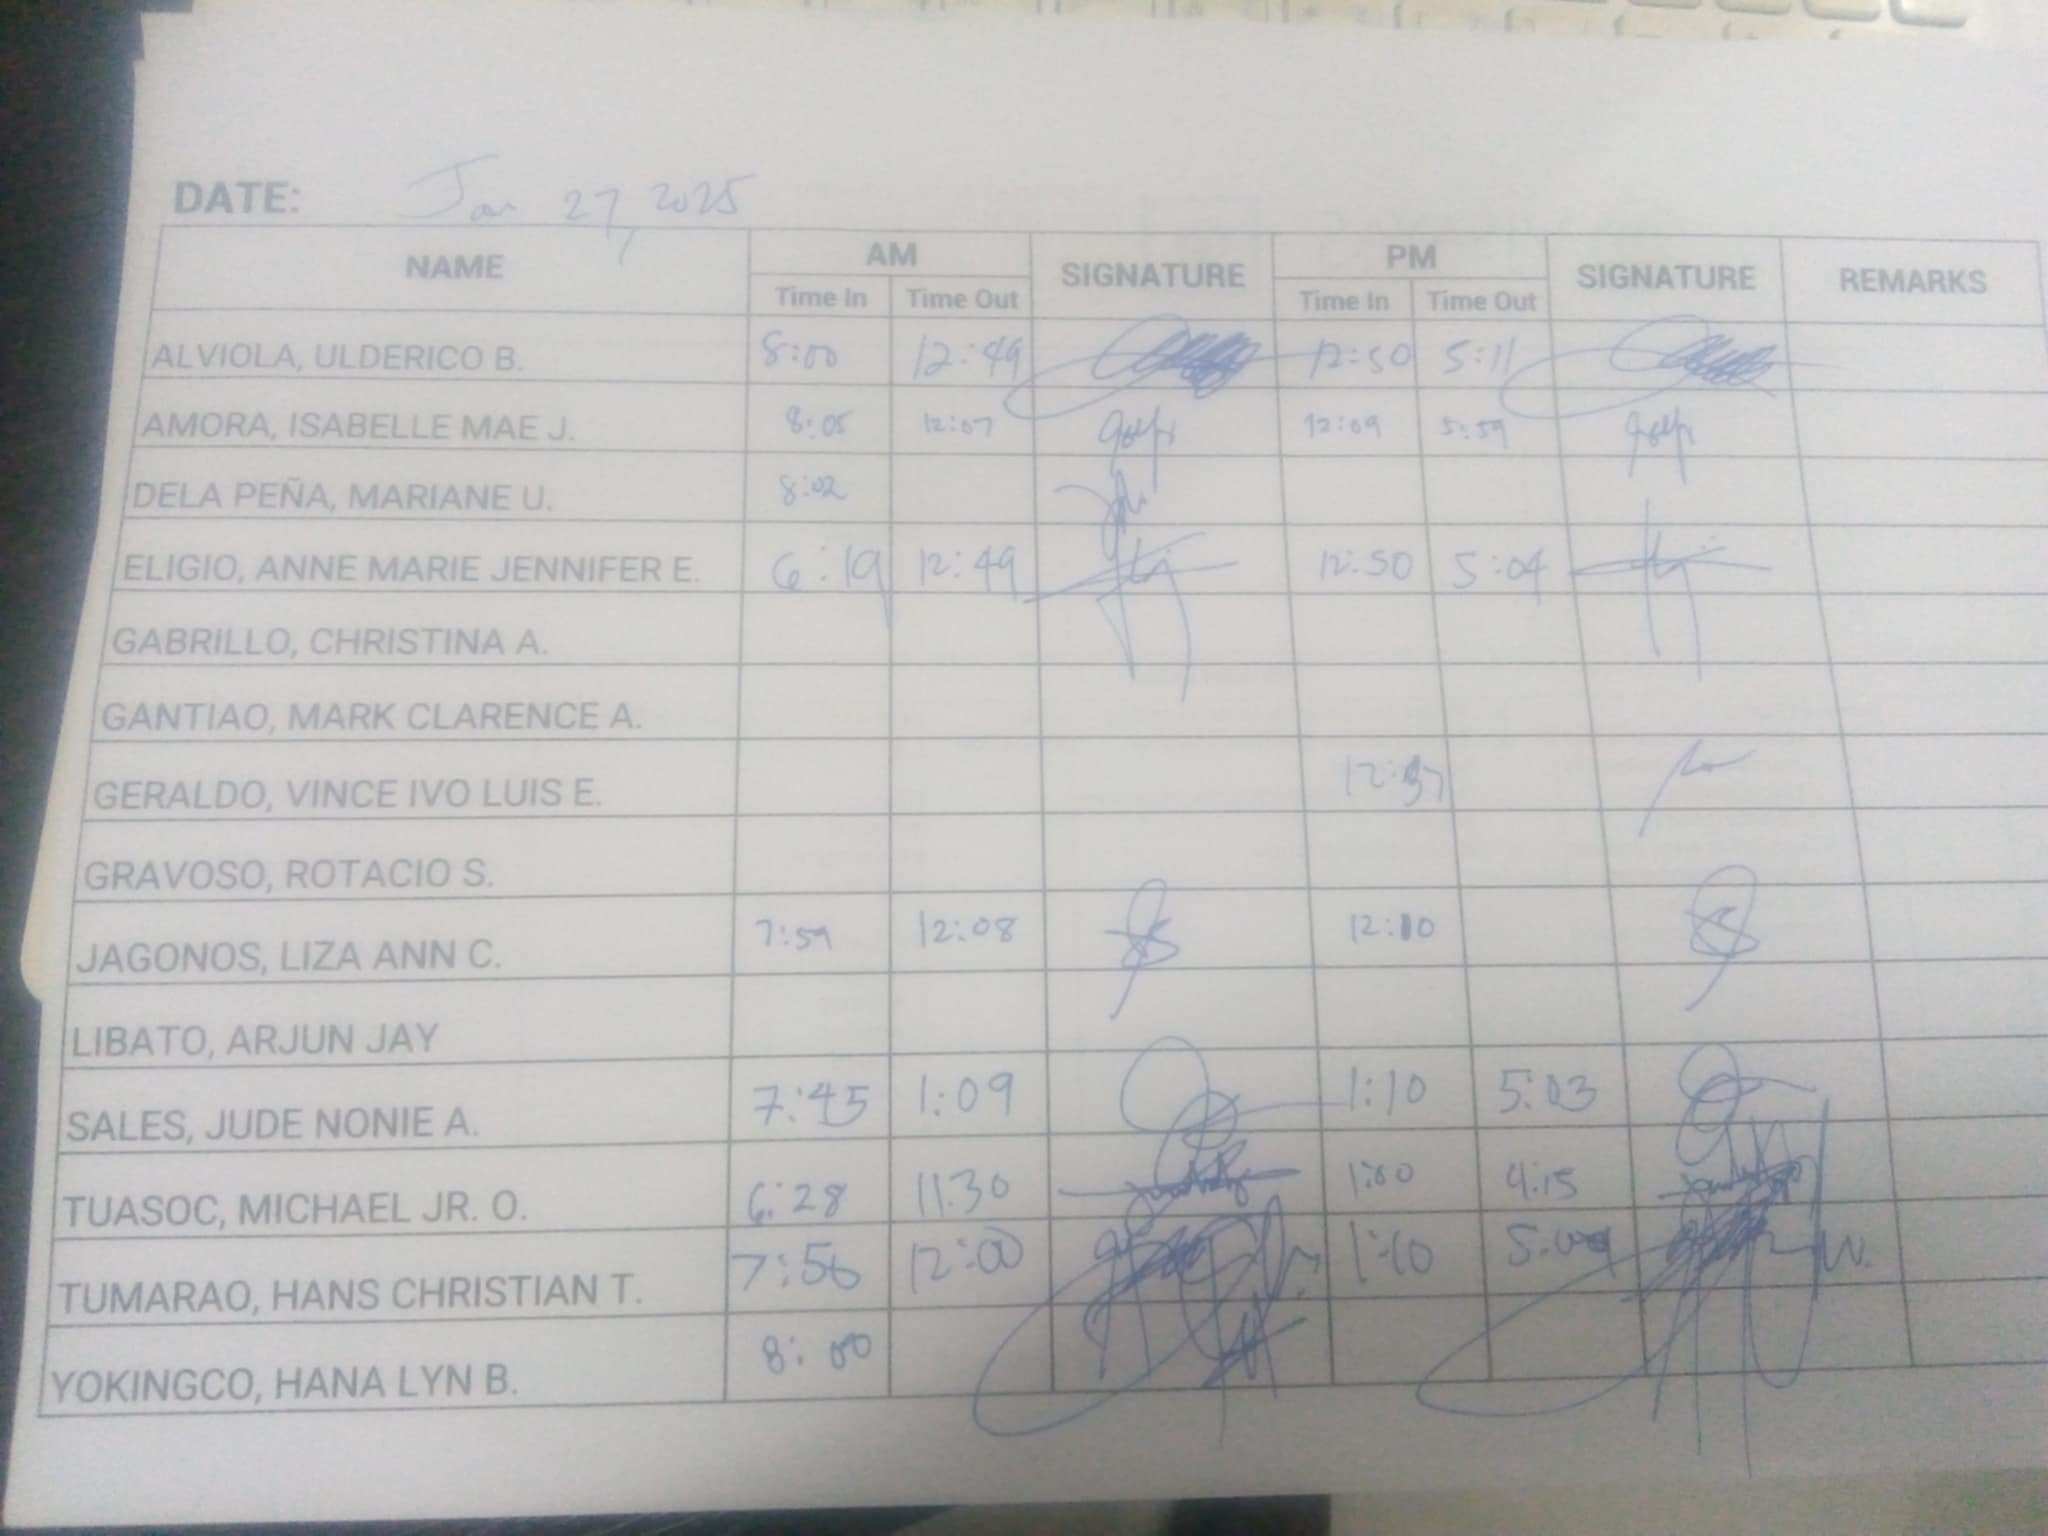 DATE: Jan 27, 2025
NAME AM SIGNATURE PM SIGNATURE REMARKS
Time In Time Out Time In Time Out
ALVIOLA, ULDERICO B. 8:00 12:49 12:50 5:11
AMORA, ISABELLE MAE J. 8:05 12:07 12:09 5:59
DELA PEÑA, MARIANE U. 8:02
ELIGIO, ANNE MARIE JENNIFER E. 6:19 12:49 12:50 5:04
GABRILLO, CHRISTINA A.
GANTIAO, MARK CLARENCE A.
GERALDO, VINCE IVO LUIS E. 12:37
GRAVOSO, ROTACIO S.
JAGONOS, LIZA ANN C. 7:59 12:08 12:10
LIBATO, ARJUN JAY
SALES, JUDE NONIE A. 7:45 1:09 1:10 5:03
TUASOC, MICHAEL JR. O. 6:28 11:30 1:00 4:15
TUMARAO, HANS CHRISTIAN T. 7:56 12:00 1:10
YOKINGCO, HANA LYN B. 8:00